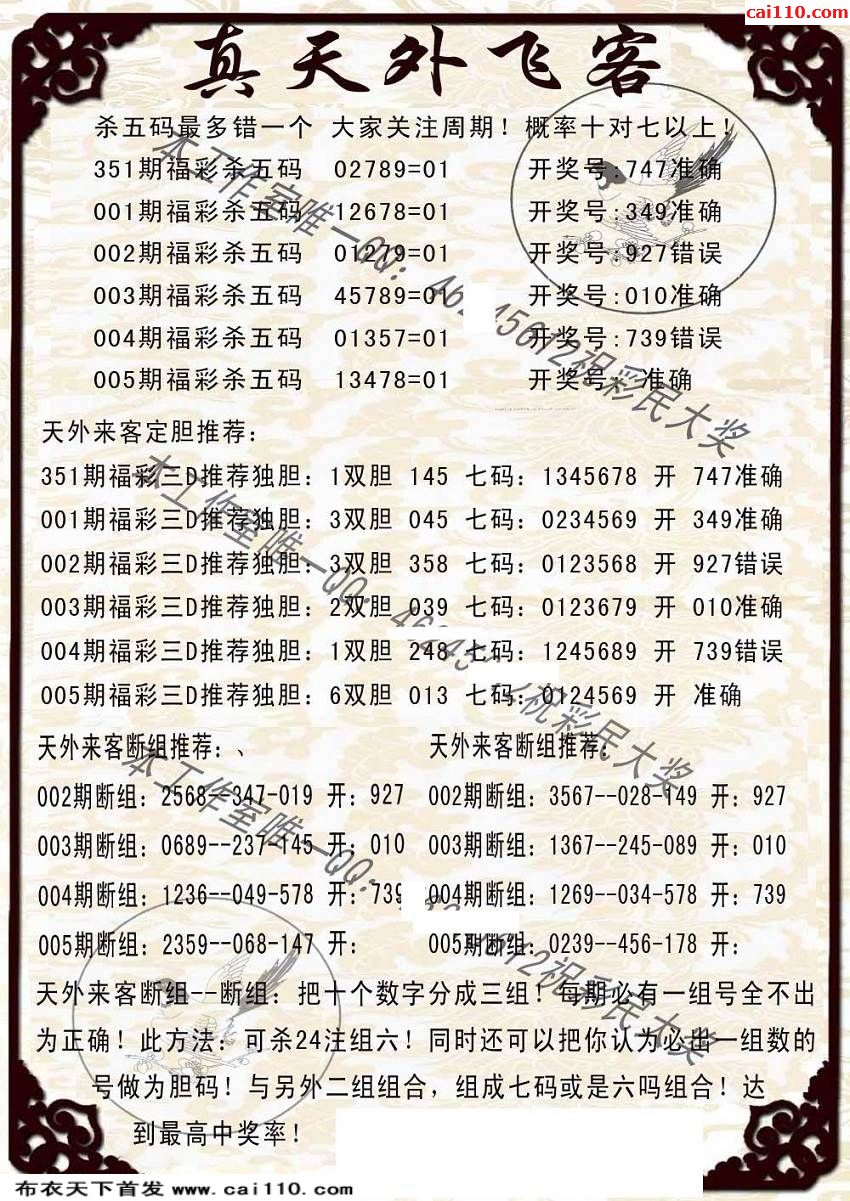 cai110.com
真天外飞客
杀五码最多错一个 大家关注周期！概率十对七以上！
351期福彩杀五码 02789=01 开奖号:747准确
001期福彩杀五码 12678=01 开奖号:349准确
002期福彩杀五码 01279=01 开奖号:927错误
003期福彩杀五码 45789=01 开奖号:010准确
004期福彩杀五码 01357=01 开奖号:739错误
005期福彩杀五码 13478=01 开奖号: 准确
天外来客定胆推荐：
351期福彩三D推荐独胆：1双胆 145 七码：1345678 开 747准确
001期福彩三D推荐独胆：3双胆 045 七码：0234569 开 349准确
002期福彩三D推荐独胆：3双胆 358 七码：0123568 开 927错误
003期福彩三D推荐独胆：2双胆 039 七码：0123679 开 010准确
004期福彩三D推荐独胆：1双胆 248 七码：1245689 开 739错误
005期福彩三D推荐独胆：6双胆 013 七码：0124569 开 准确
天外来客断组推荐：、 天外来客断组推荐：
002期断组：2568--347-019 开：927 002期断组：3567--028-149 开：927
003期断组：0689--237-145 开：010 003期断组：1367--245-089 开：010
004期断组：1236--049-578 开：739 004期断组：1269--034-578 开：739
005期断组：2359--068-147 开： 005期断组：0239--456-178 开：
天外来客断组--断组：把十个数字分成三组！每期必有一组号全不出
为正确！此方法：可杀24注组六！同时还可以把你认为必出一组数的
号做为胆码！与另外二组组合，组成七码或是六吗组合！达
到最高中奖率！
本工作室唯一QQ：
祝彩民大奖
本工作室唯一QQ：
祝彩民大奖
本工作室唯一QQ：
祝彩民大奖
布衣天下首发 www.cai110.com